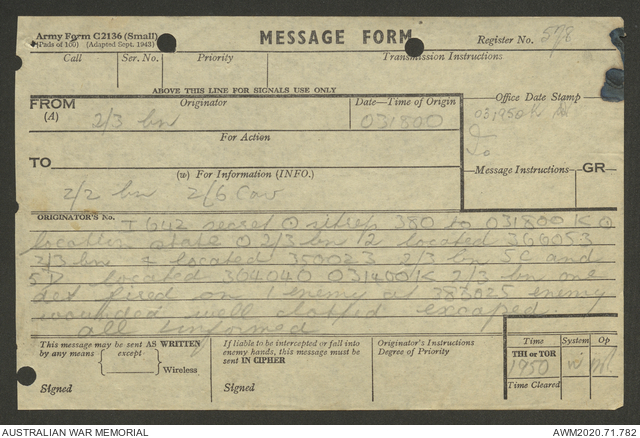 Army Form C2136 (Small)
(Pads of 100) (Adapted Sept. 1943)
MESSAGE FORM
Register No. 578
Call Ser. No. Priority Transmission Instructions
ABOVE THIS LINE FOR SIGNALS USE ONLY
FROM
(A)
Originator
2/3 bn
Date—Time of Origin
031800
Office Date Stamp
031950K
For Action
TO
(w) For Information (INFO.)
2/2 bn 2/6 Cav
Message Instructions
GR
ORIGINATOR'S No.
I 642 secret ⊙ sitrep 380 to 031800K ⊙
location state ⊙ 2/3 bn 12 located 366053
2/3 bn located 350023 2/3 bn 5C and
5D located 364040 031400/K 2/3 bn one
det fired on 1 enemy at 383025 enemy
wounded well clothed escaped
all informed
This message may be sent AS WRITTEN
by any means except
Wireless
Signed
If liable to be intercepted or fall into
enemy hands, this message must be
sent IN CIPHER
Signed
Originator's Instructions
Degree of Priority
Time System Op
THI or TOR
1950
Time Cleared
AUSTRALIAN WAR MEMORIAL
AWM2020.71.782